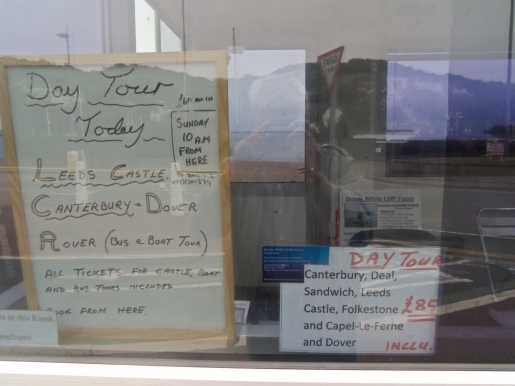 Day Tour
Today
SUNDAY
10 AM
FROM
HERE
LEEDS CASTLE
CANTERBURY & DOVER
ROVER (BUS & BOAT TOUR)
ALL TICKETS FOR CASTLE, BOAT
AND BUS TOURS INCLUDED
BOOK FROM HERE.
in this Kiosk
Dover White Cliff Tours
DAY TOUR
Canterbury, Deal,
Sandwich, Leeds
Castle, Folkestone £85
and Capel-Le-Ferne
and Dover INCLU.